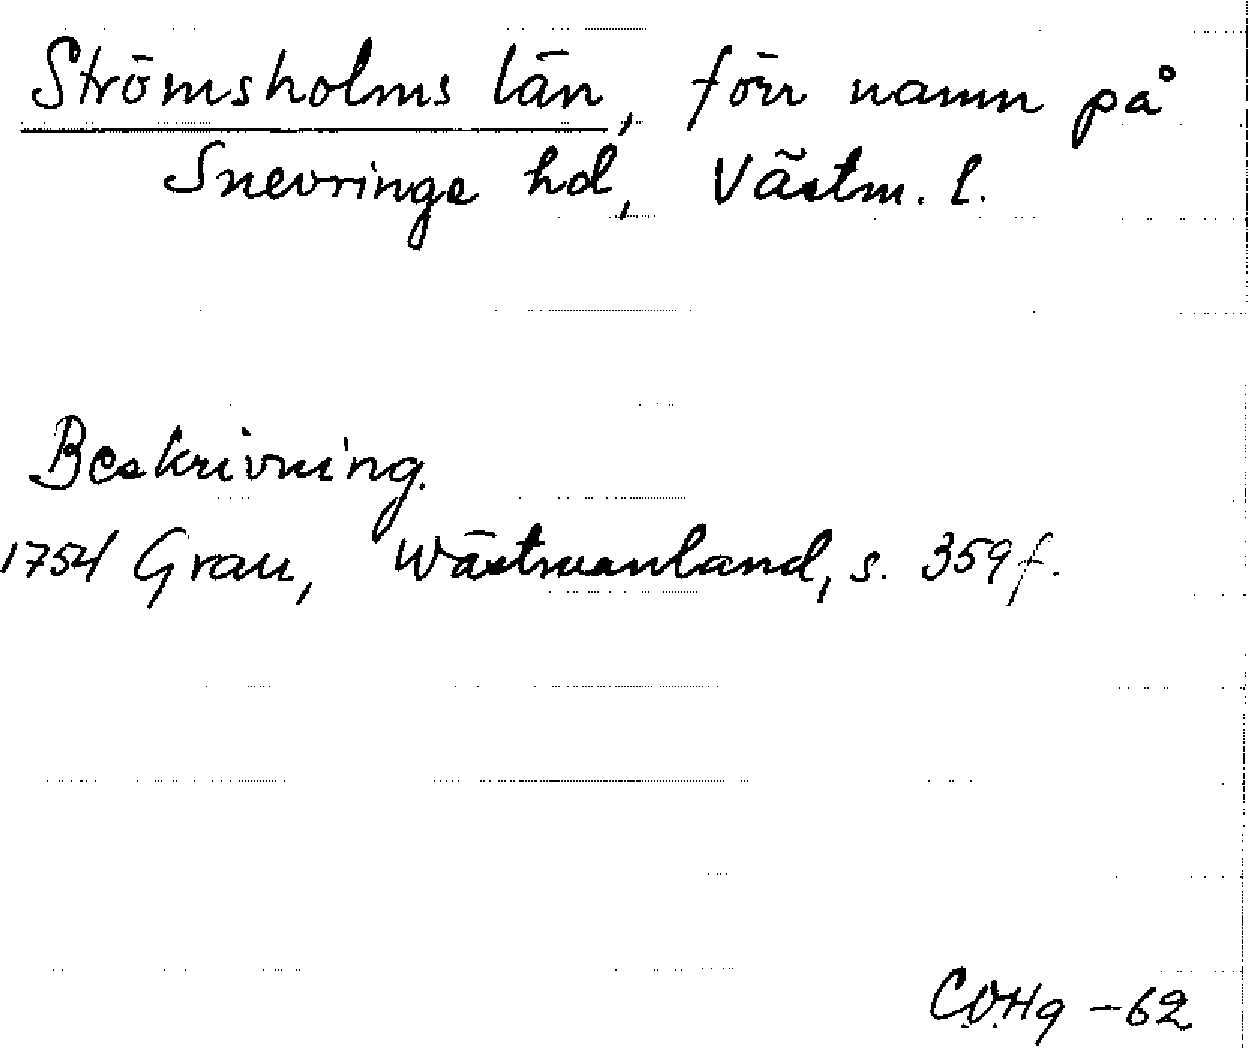 Strömsholms län, förr namn på
Snevringe hd, Västm. l.
Beskrivning.
1754 Grau, Wästmanland, s. 359 f.
COHg -62